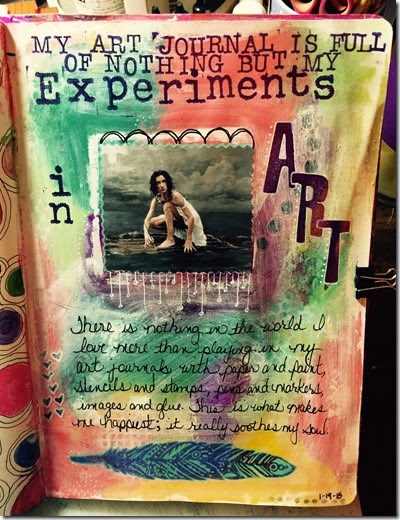 MY ART JOURNAL IS FULL
OF NOTHING BUT MY
Experiments
in
ART
There is nothing in the world I
love more than playing in my
art journals with paper and paint,
stencils and stamps, pens and markers,
images and glue. This is what makes
me happiest; it really soothes my soul.
1-19-15